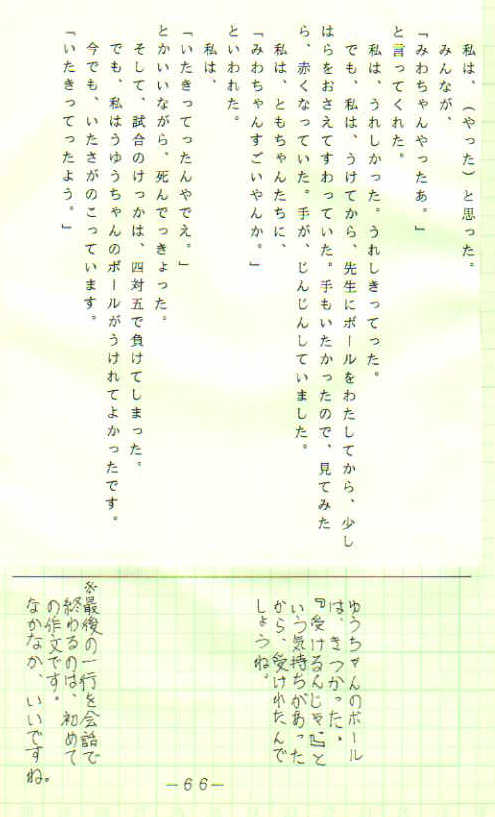 私は、（やった）と思った。
みんなが、
「みわちゃんやったあ。」
と言ってくれた。
私は、うれしかった。うれしきってった。
でも、私は、うけてから、先生にボールをわたしてから、少し
はらをおさえてすわっていた。手もいたかったので、見てみた
ら、赤くなっていた。手が、じんじんしていました。
私は、ともちゃんたちに、
「みわちゃんすごいやんか。」
といわれた。
私は、
「いたきってったんやでえ。」
とかいいながら、死んでっきょった。
そして、試合のけっかは、四対五で負けてしまった。
でも、私はうゆうちゃんのボールがうけれてよかったです。
今でも、いたさがのこっています。
「いたきってったよう。」
ゆうちゃんのボール
は、きつかった。
『受けるんじゃ』と
いう気持ちがあった
から、受けれたんで
しょうね。
※最後の一行を会話で
終わるのは、初めて
の作文です。
なかなか、いいですね。
－６６－